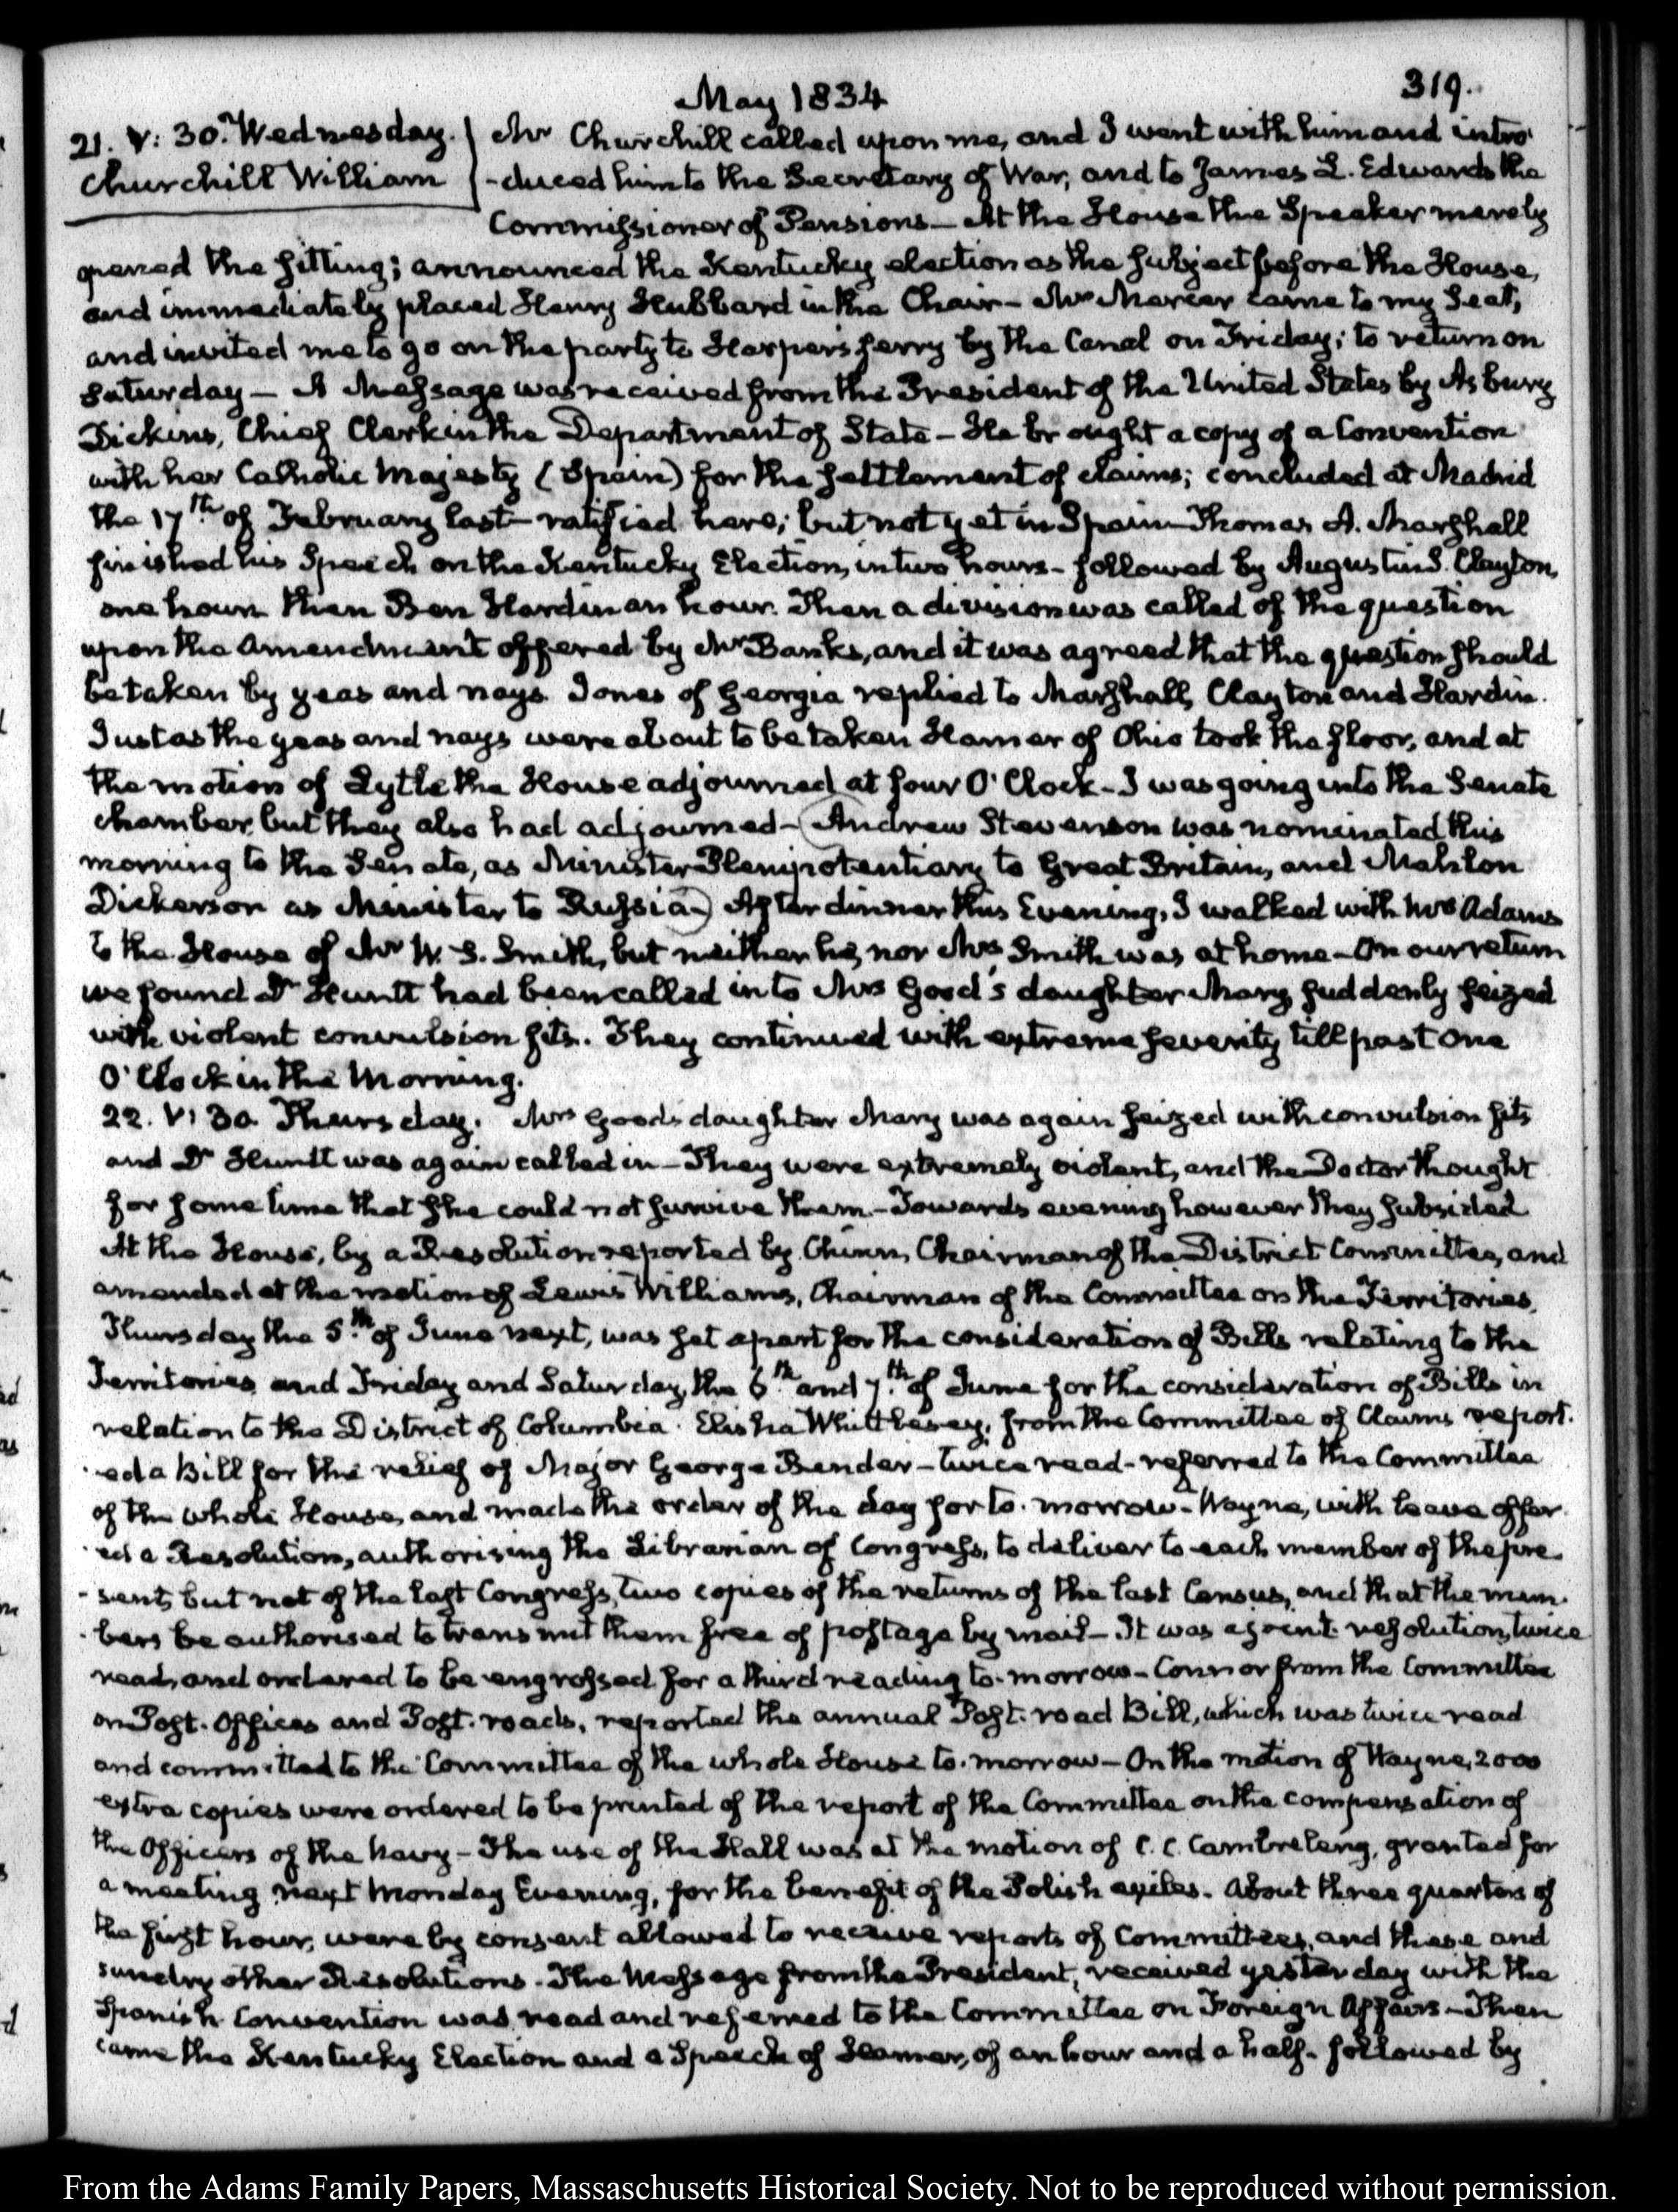 May 1834
319.
21. V: 30. Wednesday.
Churchill William
Mr Churchill called upon me, and I went with him and intro
-duced him to the Secretary of War, and to James L. Edwards the
Commissioner of Pensions — At the House the Speaker merely
opened the sitting; announced the Kentucky election as the subject before the House,
and immediately placed Henry Hubbard in the Chair — Mr Mercer came to my Seat,
and invited me to go on the party to Harpers ferry by the Canal on Friday; to return on
Saturday — A Message was received from the President of the United States by Asbury
Dickins, Chief Clerk in the Department of State — He brought a copy of a Convention
with her Catholic Majesty (Spain) for the settlement of claims; concluded at Madrid
the 17th of February last — ratified here; but not yet in Spain — Thomas A. Marshall
finished his Speech on the Kentucky Election, in two hours — followed by Augustin S. Clayton,
one hour. Then Ben Hardin an hour. Then a division was called of the question
upon the amendment offered by Mr Banks, and it was agreed that the question should
be taken by yeas and nays. Jones of Georgia replied to Marshall, Clayton and Hardin.
Just as the yeas and nays were about to be taken Hamer of Ohio took the floor, and at
the motion of Lytle the House adjourned at four O'Clock — I was going into the Senate
chamber, but they also had adjourned — (Andrew Stevenson was nominated this
morning to the Senate, as Minister Plenipotentiary to Great Britain, and Mahlon
Dickerson as Minister to Russia) After dinner this Evening, I walked with Mrs Adams
to the House of Mr W. S. Smith, but neither he, nor Mrs Smith was at home — On our return
we found Dr Huntt had been called in to Mrs Good's daughter Mary, suddenly seized
with violent convulsion fits. They continued with extreme severity till past One
O'Clock in the Morning.
22. V: 30. Thursday. Mrs Good's daughter Mary was again seized with convulsion fits
and Dr Huntt was again called in — They were extremely violent, and the Doctor thought
for some time that she could not survive them — Towards evening however they subsided
At the House, by a Resolution reported by Chinn, Chairman of the District Committee, and
amended at the motion of Lewis Williams, Chairman of the Committee on the Territories,
Thursday the 5th of June next, was set apart for the consideration of Bills relating to the
Territories and Friday and Saturday, the 6th and 7th of June for the consideration of Bills in
relation to the District of Columbia. Elisha Whittlesey, from the Committee of Claims report-
-ed a Bill for the relief of Major George Bender — twice read — referred to the Committee
of the whole House, and made the order of the day for to-morrow — Wayne, with leave offer-
-ed a Resolution, authorising the Librarian of Congress, to deliver to each member of the pre-
-sent, but not of the last Congress, two copies of the returns of the last Census, and that the mem-
-bers be authorised to transmit them free of postage by mail — It was a joint resolution, twice
read, and ordered to be engrossed for a third reading to-morrow — Connor from the Committee
on Post-Offices and Post-roads, reported the annual Post-road Bill, which was twice read
and committed to the Committee of the whole House to-morrow — On the motion of Wayne, 2000
extra copies were ordered to be printed of the report of the Committee on the compensation of
the Officers of the Navy — The use of the Hall was at the motion of C. C. Cambreleng, granted for
a meeting next Monday Evening, for the benefit of the Polish exiles. About three quarters of
the first hour, were by consent allowed to receive reports of Committees, and these and
sundry other Resolutions. The Message from the President, received yesterday with the
Spanish Convention was read and referred to the Committee on Foreign Affairs — Then
came the Kentucky Election and a Speech of Hamer, of an hour and a half — followed by
From the Adams Family Papers, Massachusetts Historical Society. Not to be reproduced without permission.